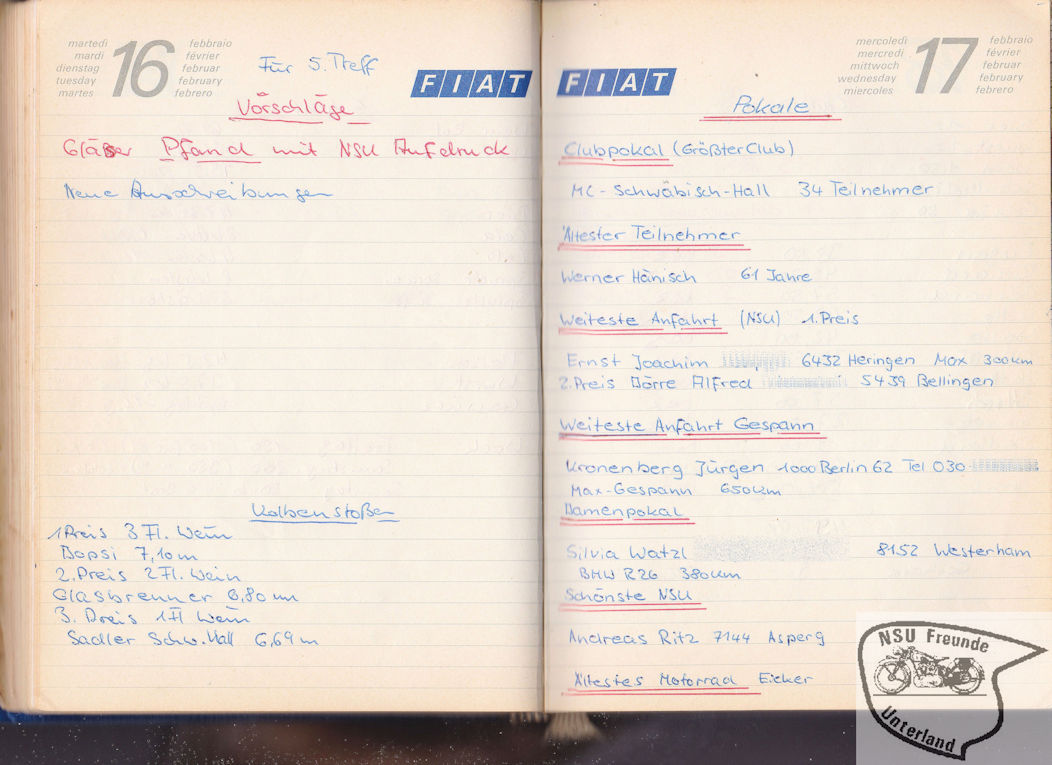 martedì
mardi
dienstag
tuesday
martes
16
febbraio
février
februar
february
febrero
Für 5. Treff
FIAT
Vorschläge
Gläser Pfand mit NSU Aufdruck
Neue Ausschreibungen
Kolbenstoßen
1 Preis 3 Fl. Wein
Bopsi 7,10 m
2. Preis 2 Fl. Wein
Glasbrenner 6,80 m
3. Preis 1 Fl Wein
Sadler Schw. Hall 6,69 m
FIAT
mercoledì
mercredi
mittwoch
wednesday
miercoles
17
febbraio
février
februar
february
febrero
Pokale
Clubpokal (Größter Club)
MC - Schwäbisch-Hall 34 Teilnehmer
Ältester Teilnehmer
Werner Hänisch 61 Jahre
Weiteste Anfahrt (NSU) 1. Preis
Ernst Joachim 6432 Heringen Max 300 km
2. Preis Dörre Alfred 5439 Bellingen
Weiteste Anfahrt Gespann
Kronenberg Jürgen 1000 Berlin 62 Tel 030-
Max-Gespann 650 km
Damenpokal
Silvia Watzl 8152 Westerham
BMW R26 380 km
Schönste NSU
Andreas Ritz 7144 Asperg
Ältestes Motorrad Eicker
NSU Freunde
Unterland